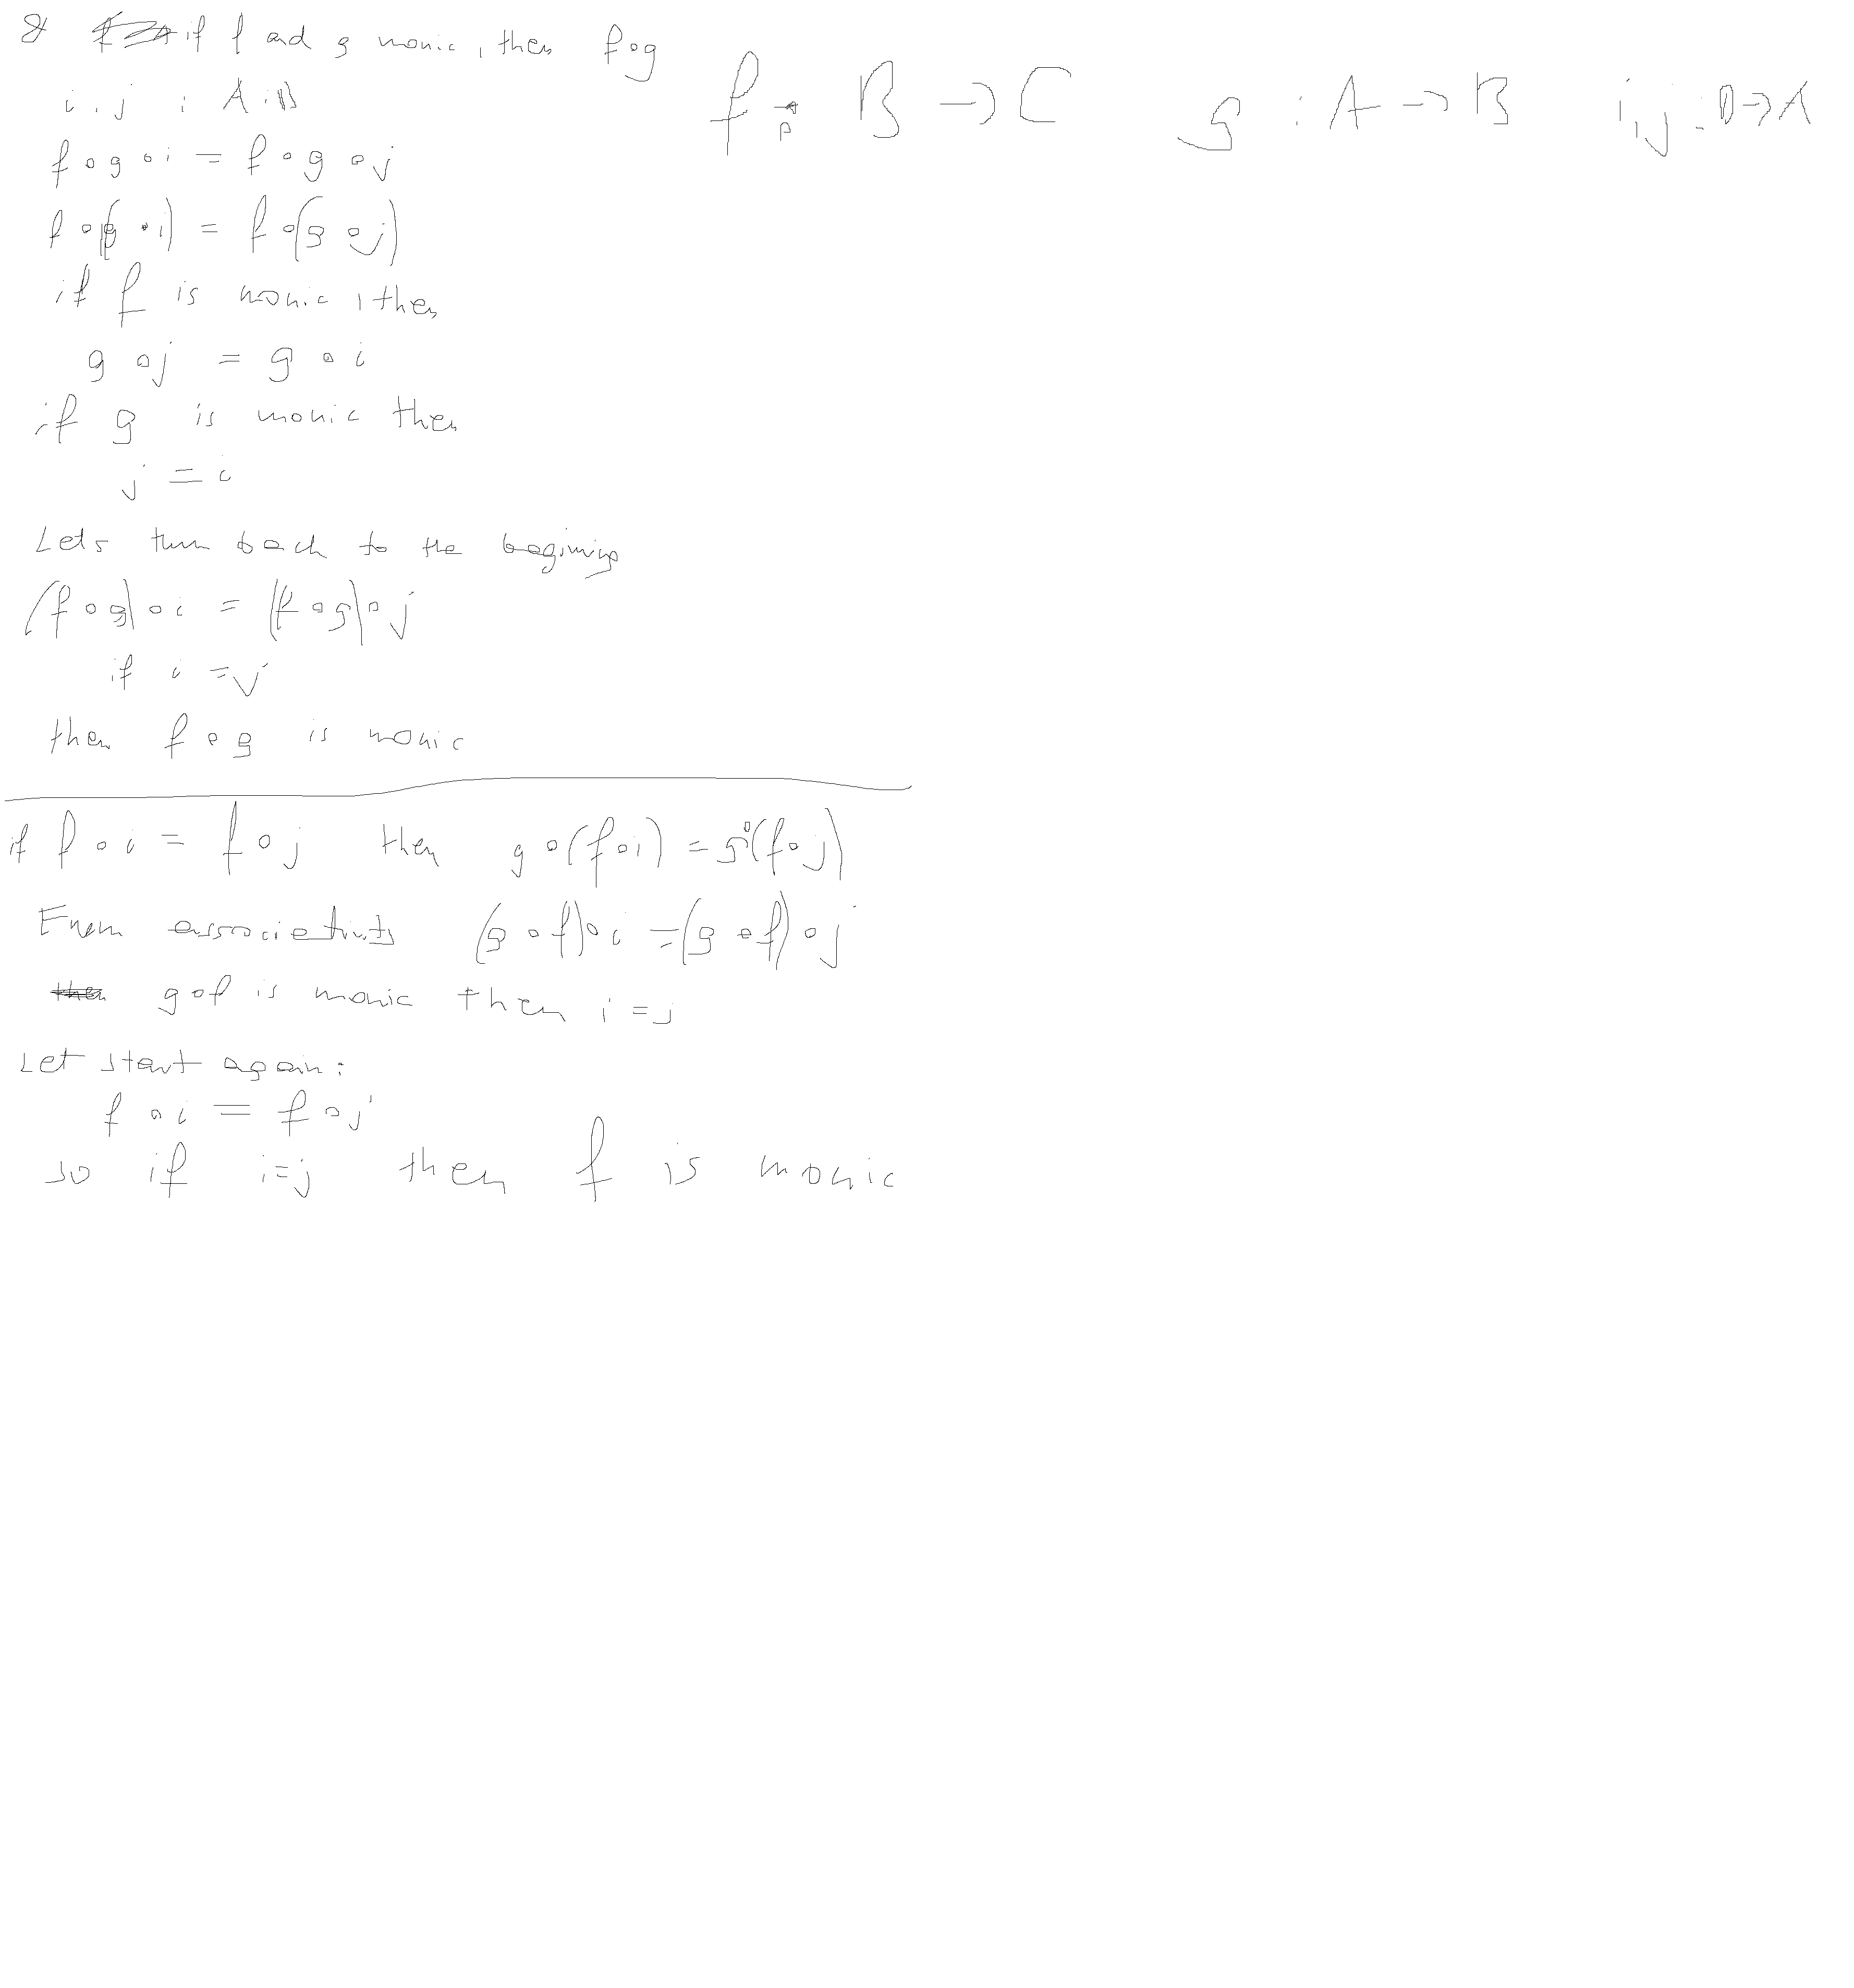 if f and g monic, then f∘g
i, j : A : B
f : B → C g : A → B i, j : D → A
f ∘ g ∘ i = f ∘ g ∘ j
f ∘ (g ∘ i) = f ∘ (g ∘ j)
if f is monic, then
g ∘ j = g ∘ i
if g is monic then
j = i
Lets turn back to the begining
(f ∘ g) ∘ i = (f ∘ g) ∘ j
if i = j
then f ∘ g is monic
if f ∘ i = f ∘ j then g ∘ (f ∘ i) = g ∘ (f ∘ j)
From associetivity (g ∘ f) ∘ i = (g ∘ f) ∘ j
then g∘f is monic then i = j
Let start again:
f ∘ i = f ∘ j
so if i = j then f is monic